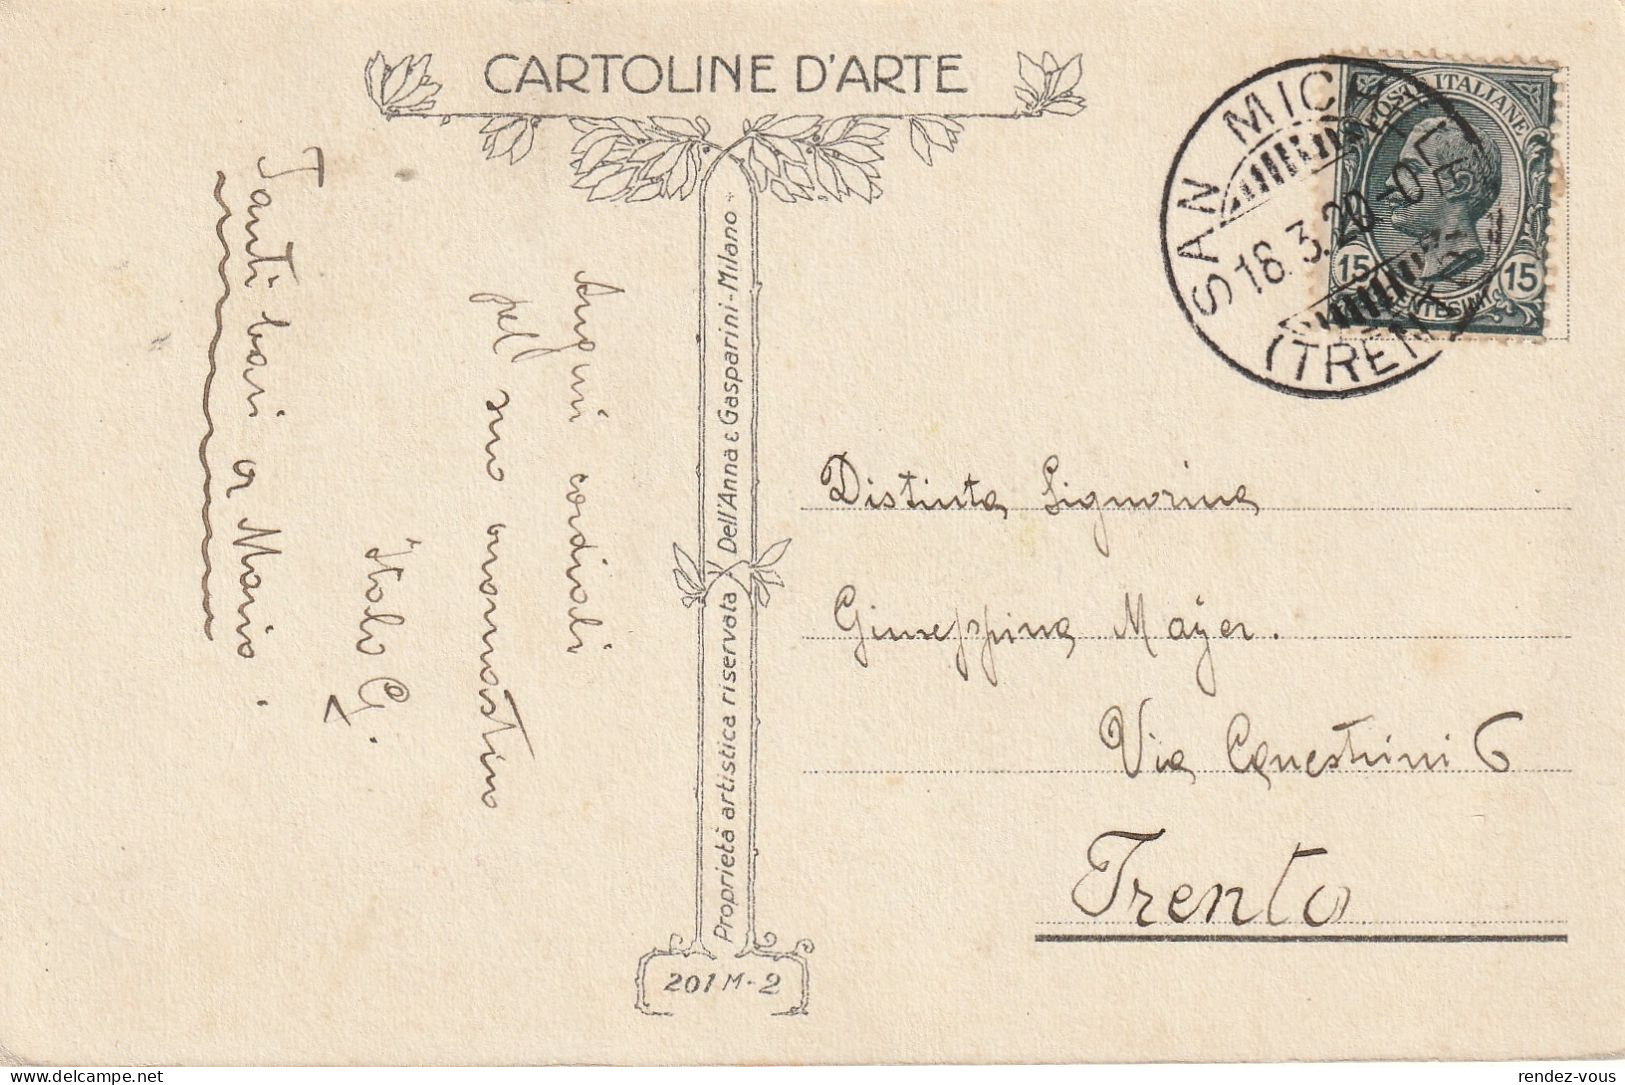 CARTOLINE D'ARTE
POSTE ITALIANE
15 15
SAN MICHELE
18.3.20
(TREN
Auguri cordiali
pel suo onomastico
Italo G.
Tanti baci a Maria.
Proprietà artistica riservata Dell'Anna e Gasparini-Milano
201 M-2
Distinta Signorina
Giuseppina Mayer.
Via Canestrini 6
Trento
delcampe.net
rendez-vous